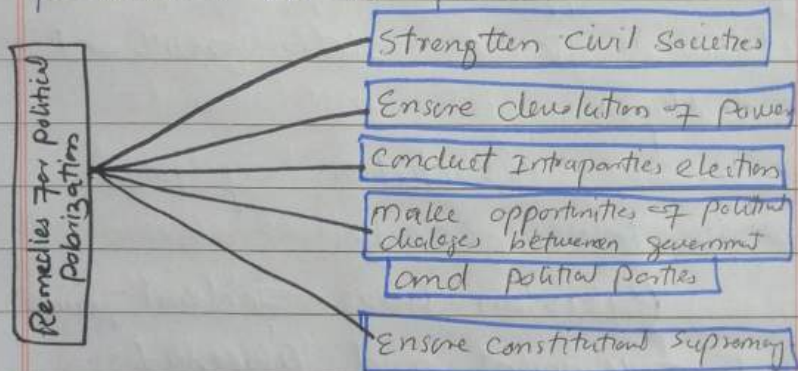 Remedies for political
Polarization
Strengthen Civil Societies
Ensure devolution of Power
Conduct Intraparties election
make opportunities of political
dialoges between government
and political parties
Ensure constitutional Supremacy